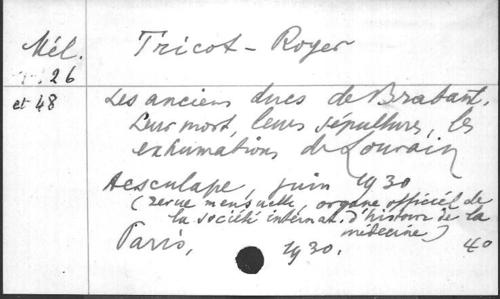 Mél. Tricot-Royer
26
et 48 Les anciens ducs de Brabant.
Leur mort, leurs sépultures, les
exhumations de Louvain
Aesculape, juin 1930
(revue mensuelle, organe officiel de
la société internat. d'histoire de la
médecine)
Paris, 1930. 40